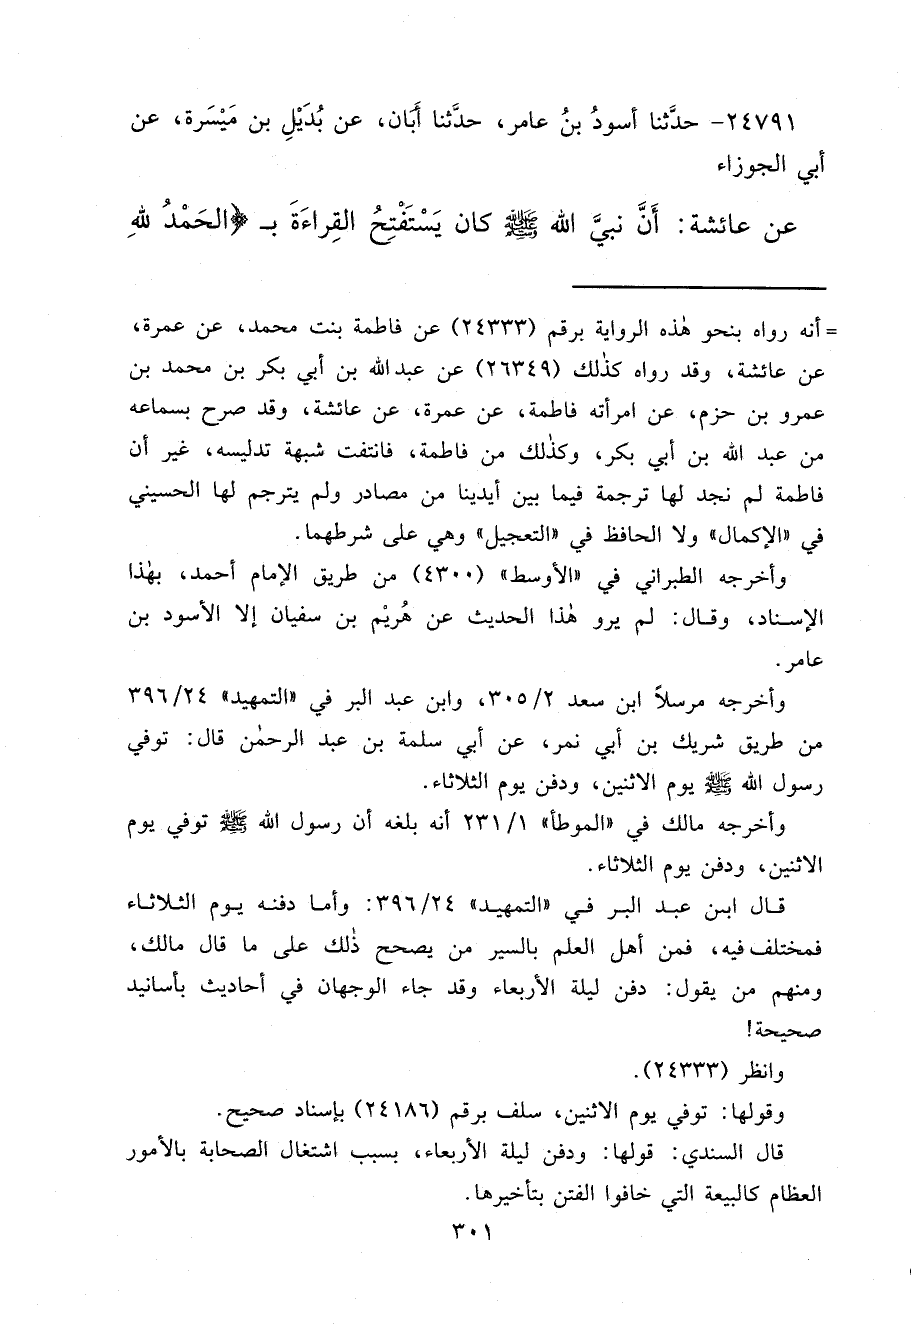 ٢٤٧٩١- حدَّثنا أسودُ بنُ عامر، حدَّثنا أَبَان، عن بُدَيْلِ بن مَيْسَرة، عن
أبي الجوزاء
عن عائشة: أَنَّ نبيَّ الله ﷺ كان يَسْتَفْتِحُ القِراءَةَ بـ ﴿الحَمْدُ للهِ
= أنه رواه بنحو هٰذه الرواية برقم (٢٤٣٣٣) عن فاطمة بنت محمد، عن عمرة،
عن عائشة، وقد رواه كذٰلك (٢٦٣٤٩) عن عبد الله بن أبي بكر بن محمد بن
عمرو بن حزم، عن امرأته فاطمة، عن عمرة، عن عائشة، وقد صرح بسماعه
من عبد الله بن أبي بكر، وكذٰلك من فاطمة، فانتفت شبهة تدليسه، غير أن
فاطمة لم نجد لها ترجمة فيما بين أيدينا من مصادر ولم يترجم لها الحسيني
في «الإكمال» ولا الحافظ في «التعجيل» وهي على شرطهما.
وأخرجه الطبراني في «الأوسط» (٤٣٠٠) من طريق الإمام أحمد، بهٰذا
الإسناد، وقال: لم يرو هٰذا الحديث عن هُرَيْم بن سفيان إلا الأسود بن
عامر.
وأخرجه مرسلاً ابن سعد ٣٠٥/٢، وابن عبد البر في «التمهيد» ٣٩٦/٢٤
من طريق شريك بن أبي نمر، عن أبي سلمة بن عبد الرحمٰن قال: توفي
رسول الله ﷺ يوم الاثنين، ودفن يوم الثلاثاء.
وأخرجه مالك في «الموطأ» ٢٣١/١ أنه بلغه أن رسول الله ﷺ توفي يوم
الاثنين، ودفن يوم الثلاثاء.
قال ابن عبد البر في «التمهيد» ٣٩٦/٢٤: وأما دفنه يوم الثلاثاء
فمختلف فيه، فمن أهل العلم بالسير من يصحح ذٰلك على ما قال مالك،
ومنهم من يقول: دفن ليلة الأربعاء وقد جاء الوجهان في أحاديث بأسانيد
صحيحة!
وانظر (٢٤٣٣٣).
وقولها: توفي يوم الاثنين، سلف برقم (٢٤١٨٦) بإسناد صحيح.
قال السندي: قولها: ودفن ليلة الأربعاء، بسبب اشتغال الصحابة بالأمور
العظام كالبيعة التي خافوا الفتن بتأخيرها.
٣٠١